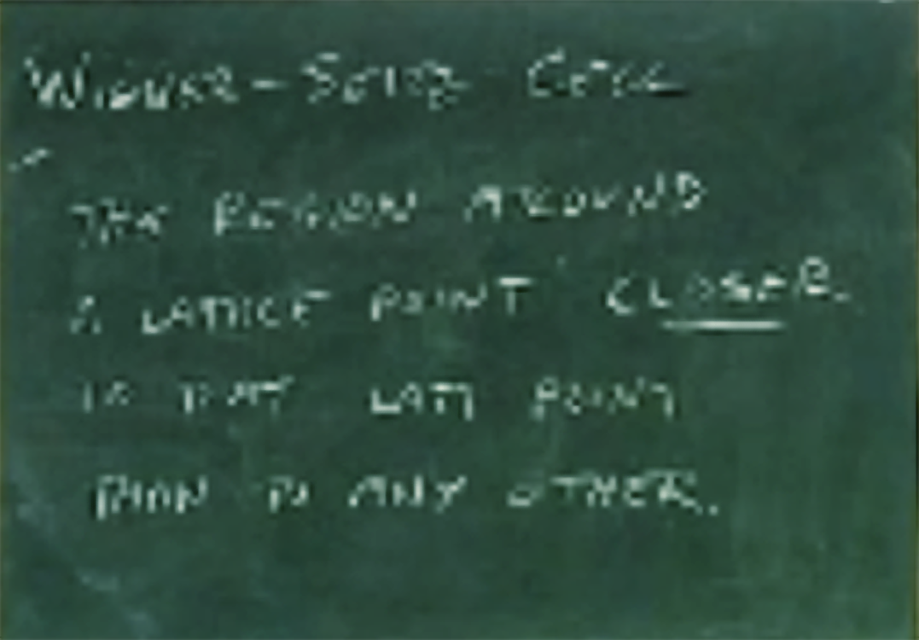 WIGNER-SEITZ CELL
THE REGION AROUND
A LATTICE POINT CLOSER
TO THAT LATT POINT
THAN TO ANY OTHER.